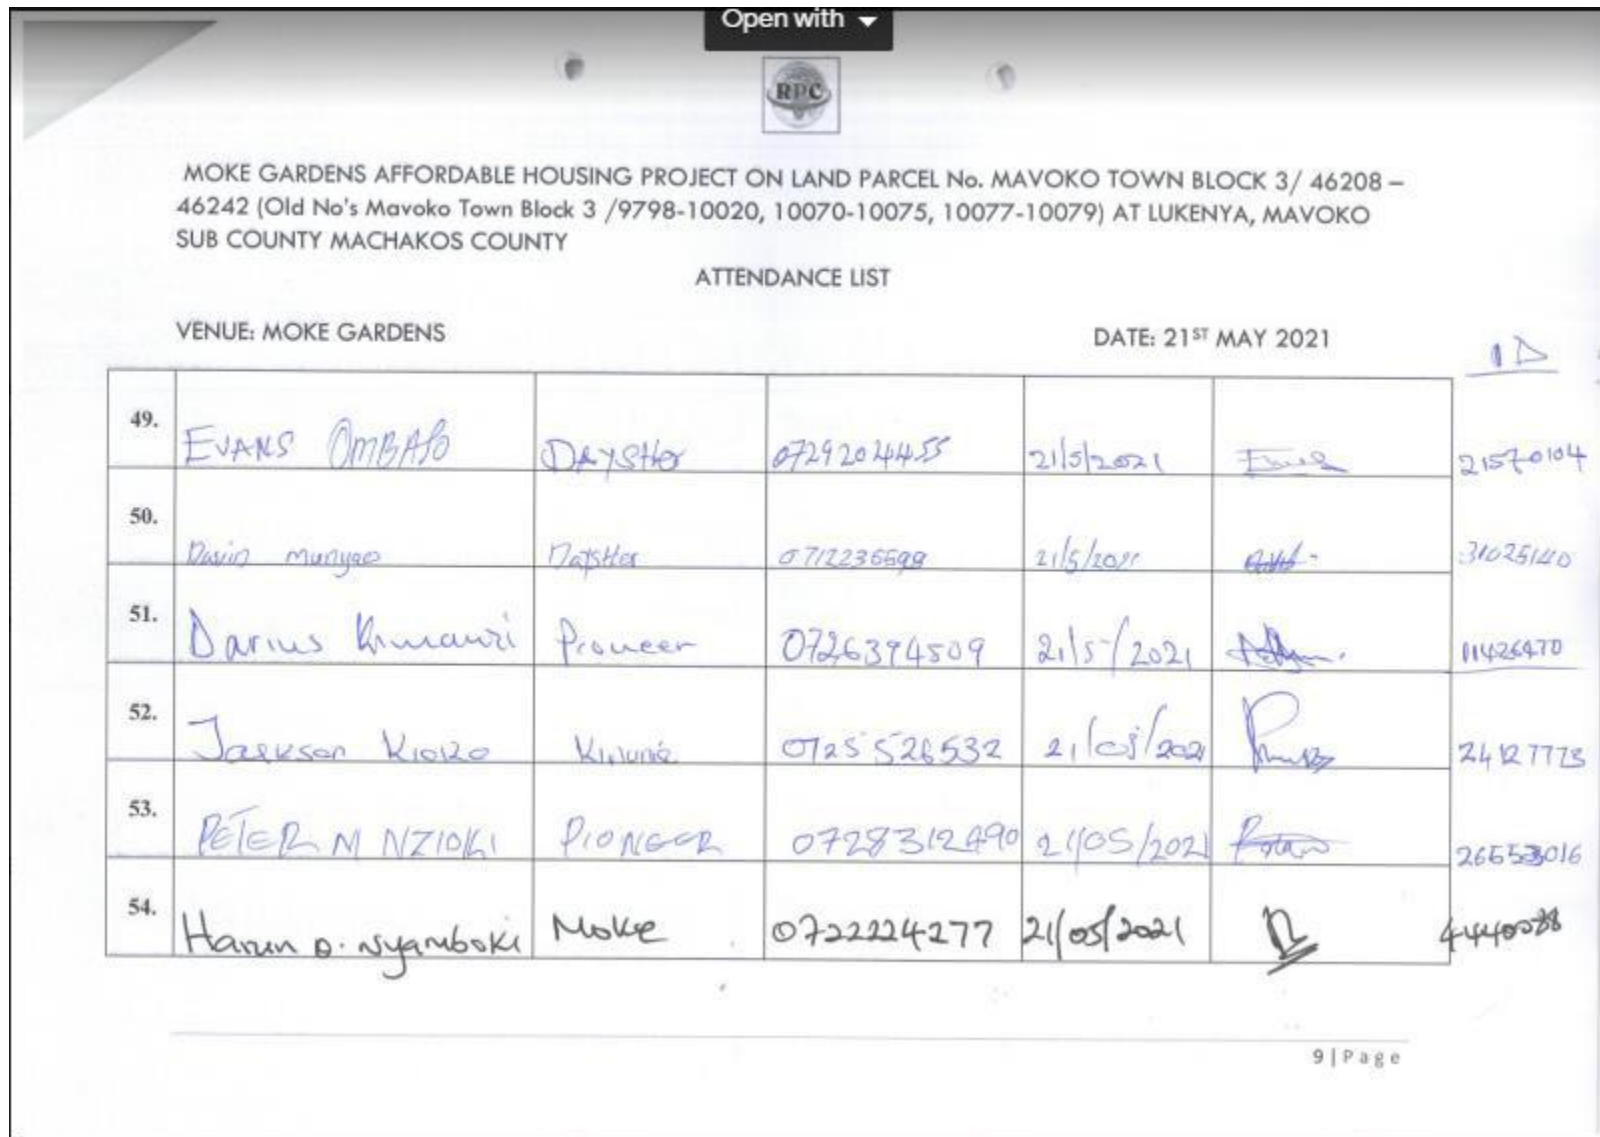 Open with
RPC
MOKE GARDENS AFFORDABLE HOUSING PROJECT ON LAND PARCEL No. MAVOKO TOWN BLOCK 3/ 46208 –
46242 (Old No's Mavoko Town Block 3 /9798-10020, 10070-10075, 10077-10079) AT LUKENYA, MAVOKO
SUB COUNTY MACHAKOS COUNTY
ATTENDANCE LIST
VENUE: MOKE GARDENS DATE: 21ST MAY 2021
ID
49. EVANS OMBASO DAYSTAR 0729204455 21/5/2021 21570104
50. 0712236599 21/5/2021 31025140
51. Darius Kimanzi Pioneer 0726394509 21/5/2021 11426470
52. Jackson Kioko 0725526532 21/05/2021 24127773
53. PETER M NZIOKI PIONEER 0728312490 21/05/2021
54. Harun O. Nyamboki Moke 0722224277 21/05/2021
9|Page